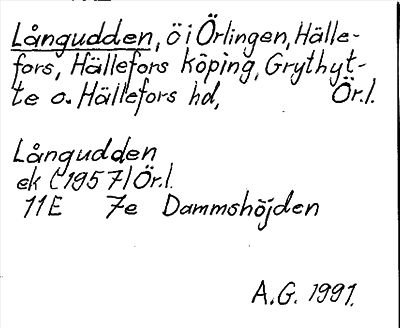 Långudden, ö i Örlingen, Hälle-
fors, Hällefors köping, Grythyt-
te o. Hällefors hd, Ör.l.
Långudden
ek (1957) Ör.l.
11E 7e Dammshöjden
A.G. 1991.